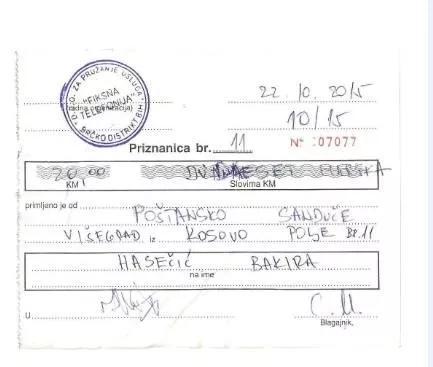 D.O.O. ZA PRUŽANJE USLUGA
"FIKSNA TELEFONIJA"
BRČKO DISTRIKT BIH
(radna organizacija)
22. 10. 2015
10/15
Priznanica br. 11
Nº 07077
20,00
KM
Slovima KM
primljeno je od
POŠTANSKO SANDUČE
VIŠEGRAD iz KOSOVO POLJE BR. 11
HASEČIĆ BAKIRA
na ime
U
Blagajnik,